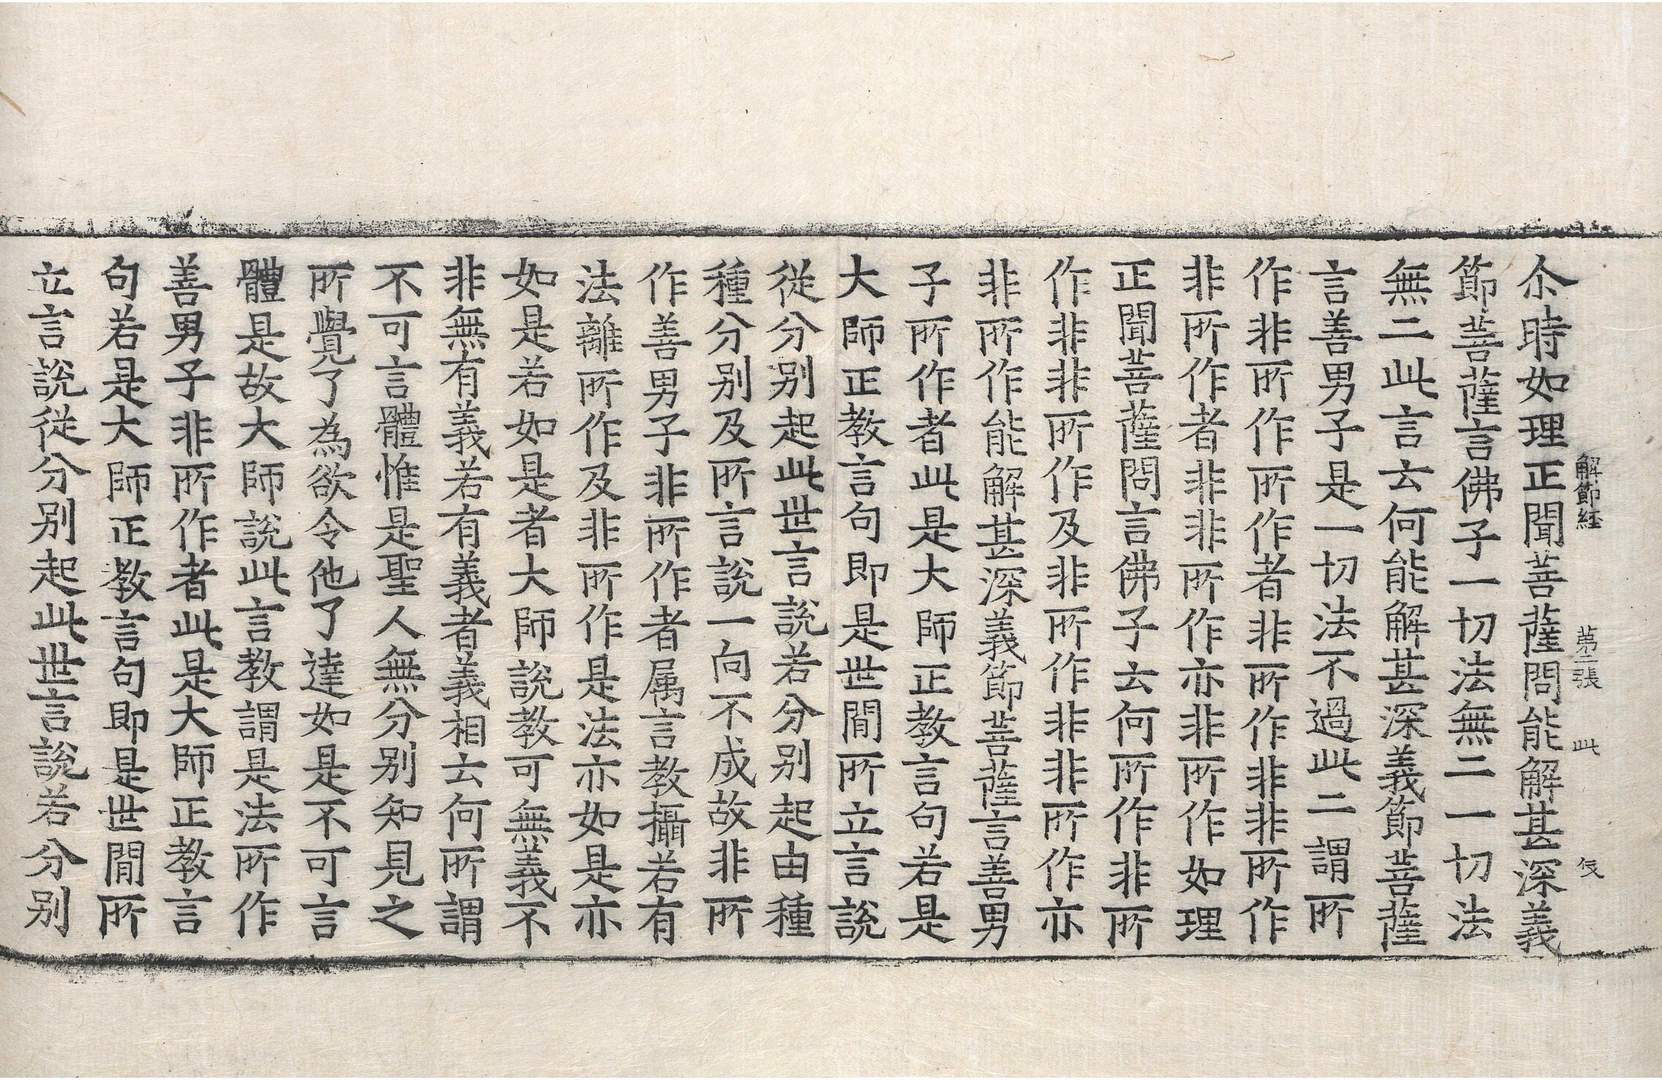 解節經 第二張 此
尒時如理正聞菩薩問能解甚深義
節菩薩言佛子一切法無二一切法
無二此言云何能解甚深義節菩薩
言善男子是一切法不過此二謂所
作非所作所作者非所作非非所作
非所作者非非所作亦非所作如理
正聞菩薩問言佛子云何所作非所
作非非所作及非所作非非所作亦
非所作能解甚深義節菩薩言善男
子所作者此是大師正教言句若是
大師正教言句即是世間所立言說
從分別起此世言說若分別起由種
種分別及所言說一向不成故非所
作善男子非所作者属言教攝若有
法離所作及非所作是法亦如是亦
如是若如是者大師說教可無義不
非無有義若有義者義相云何所謂
不可言體惟是聖人無分別知見之
所覺了為欲令他了達如是不可言
體是故大師說此言教謂是法所作
善男子非所作者此是大師正教言
句若是大師正教言句即是世間所
立言說從分別起此世言說若分別